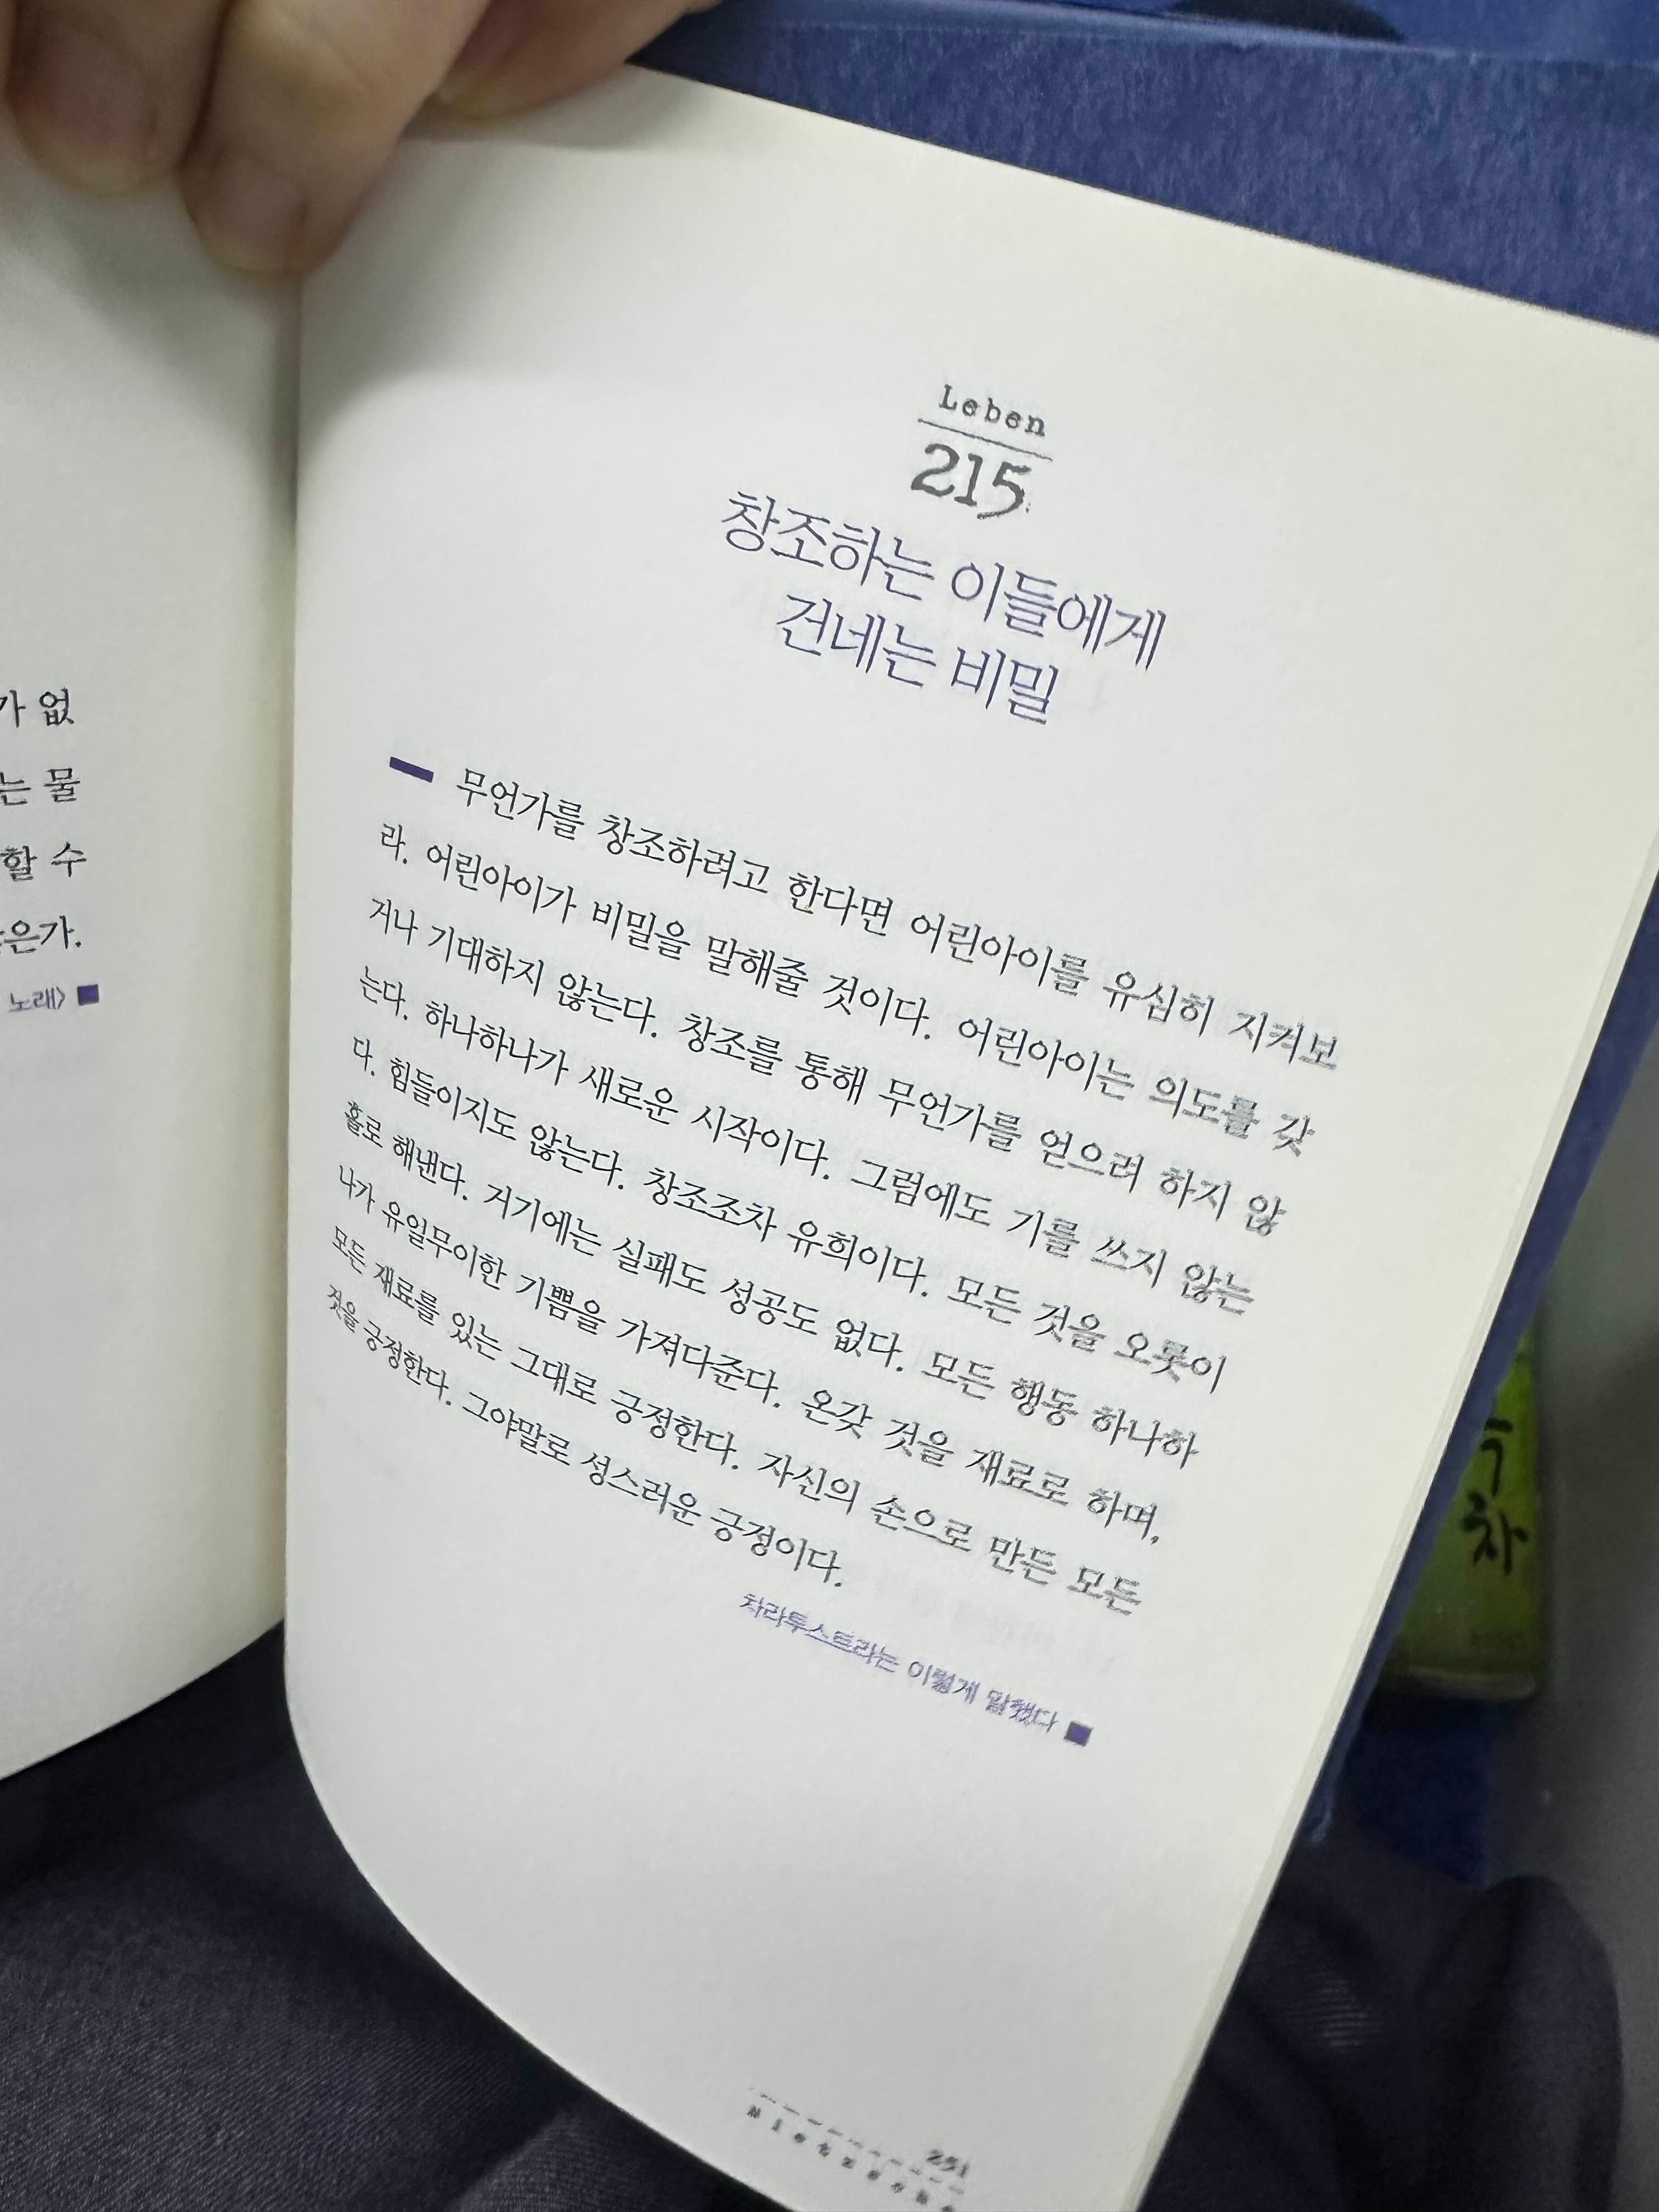 가 없
는 물
할 수
은가.
노래〉
Leben
215
창조하는 이들에게
건네는 비밀
무언가를 창조하려고 한다면 어린아이를 유심히 지켜보
라. 어린아이가 비밀을 말해줄 것이다. 어린아이는 의도를 갖
거나 기대하지 않는다. 창조를 통해 무언가를 얻으려 하지 않
는다. 하나하나가 새로운 시작이다. 그럼에도 기를 쓰지 않는
다. 힘들이지도 않는다. 창조조차 유희이다. 모든 것을 오롯이
홀로 해낸다. 거기에는 실패도 성공도 없다. 모든 행동 하나하
나가 유일무이한 기쁨을 가져다준다. 온갖 것을 재료로 하며,
모든 재료를 있는 그대로 긍정한다. 자신의 손으로 만든 모든
것을 긍정한다. 그야말로 성스러운 긍정이다.
차라투스트라는 이렇게 말했다
251
Nietzsche
차